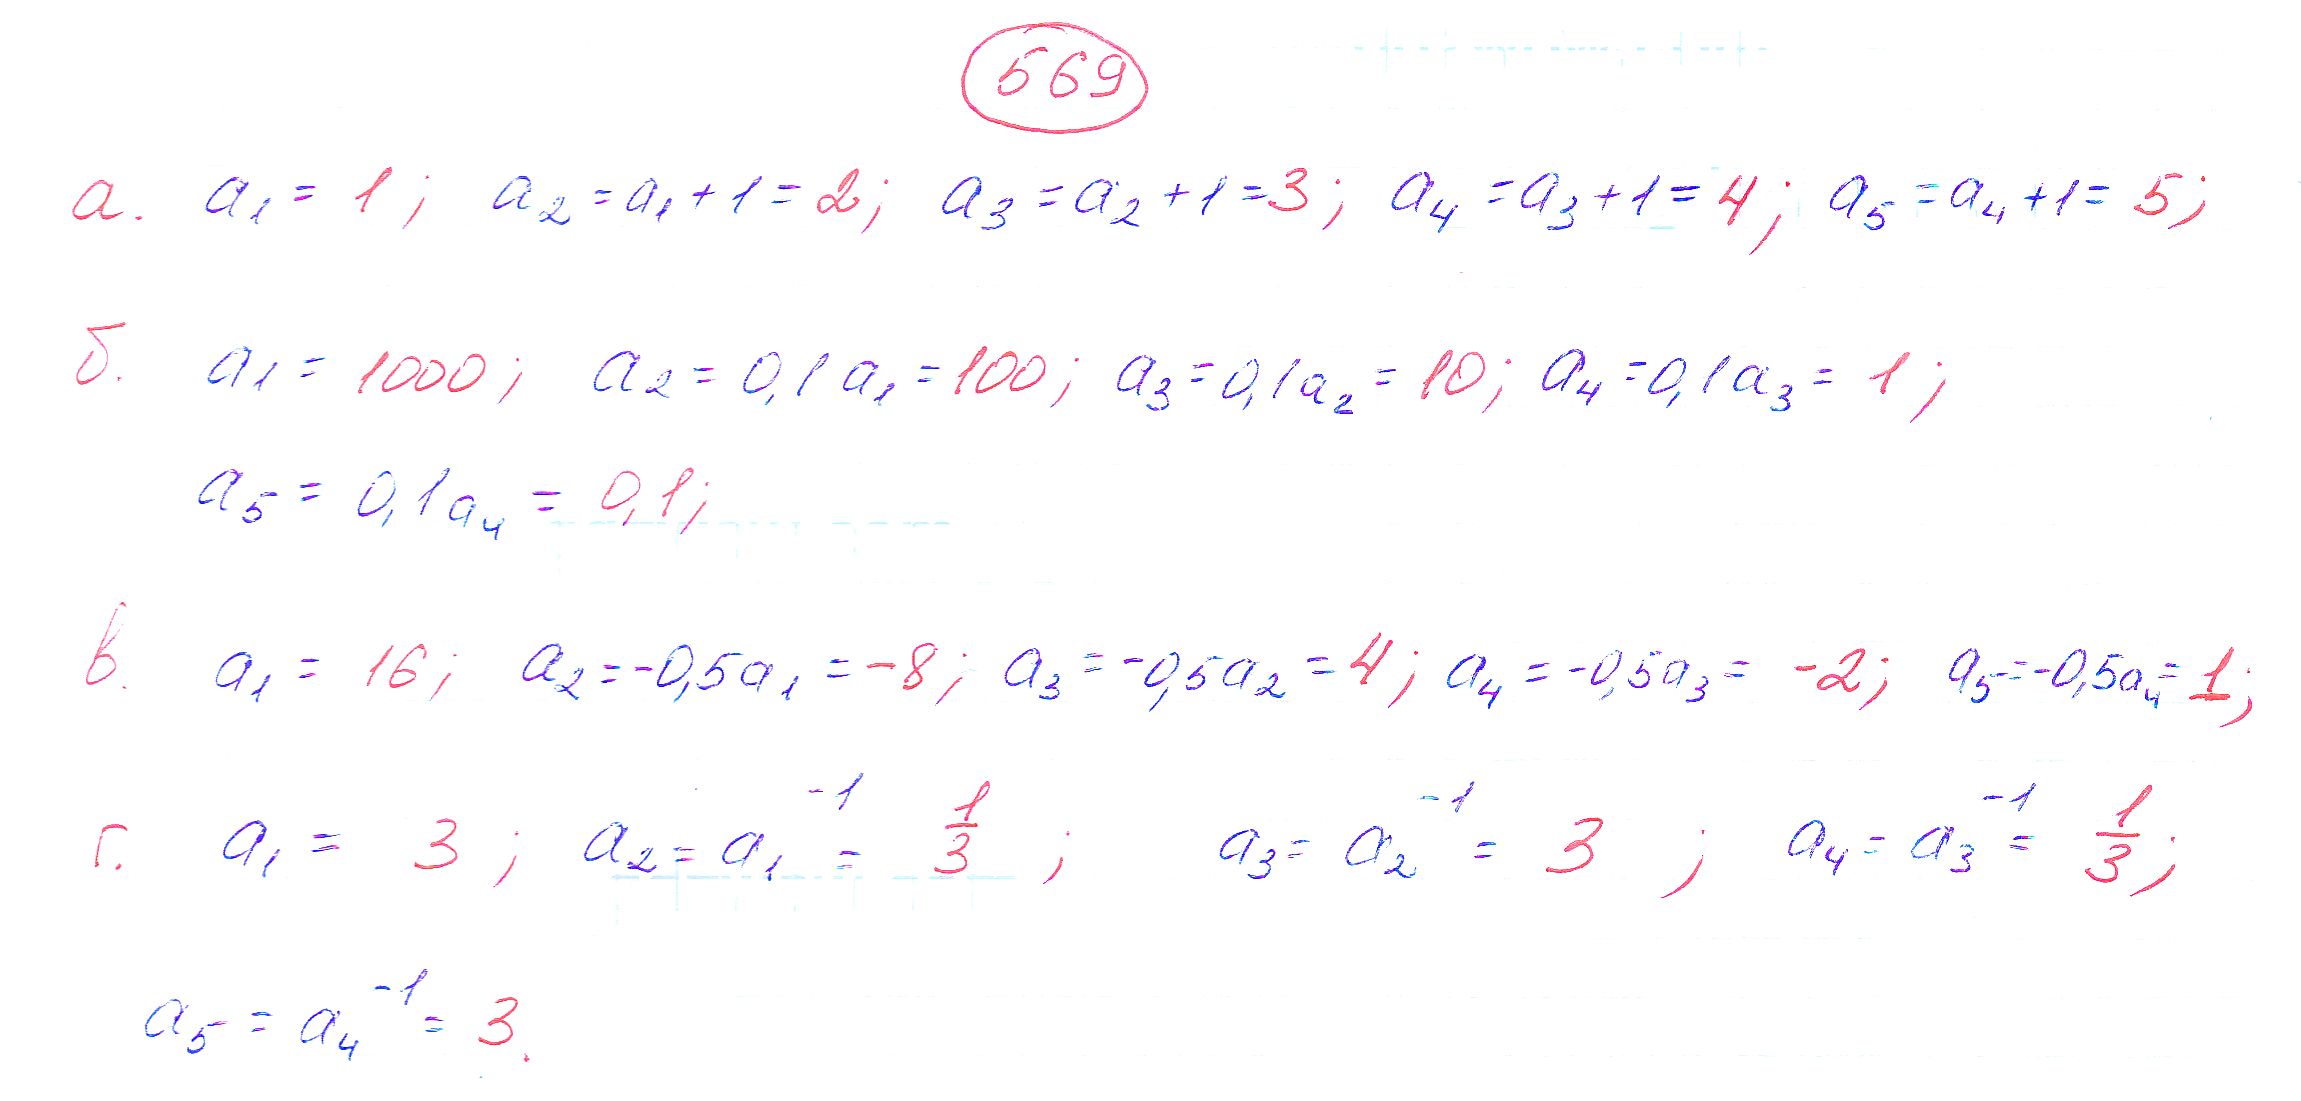 569
а. a₁ = 1; a₂ = a₁ + 1 = 2; a₃ = a₂ + 1 = 3; a₄ = a₃ + 1 = 4; a₅ = a₄ + 1 = 5;
б. a₁ = 1000; a₂ = 0,1 a₁ = 100; a₃ = 0,1 a₂ = 10; a₄ = 0,1 a₃ = 1;
a₅ = 0,1 a₄ = 0,1;
в. a₁ = 16; a₂ = -0,5 a₁ = -8; a₃ = -0,5 a₂ = 4; a₄ = -0,5 a₃ = -2; a₅ = -0,5 a₄ = 1;
г. a₁ = 3; a₂ = a₁⁻¹ = 1/3; a₃ = a₂⁻¹ = 3; a₄ = a₃⁻¹ = 1/3;
a₅ = a₄⁻¹ = 3.